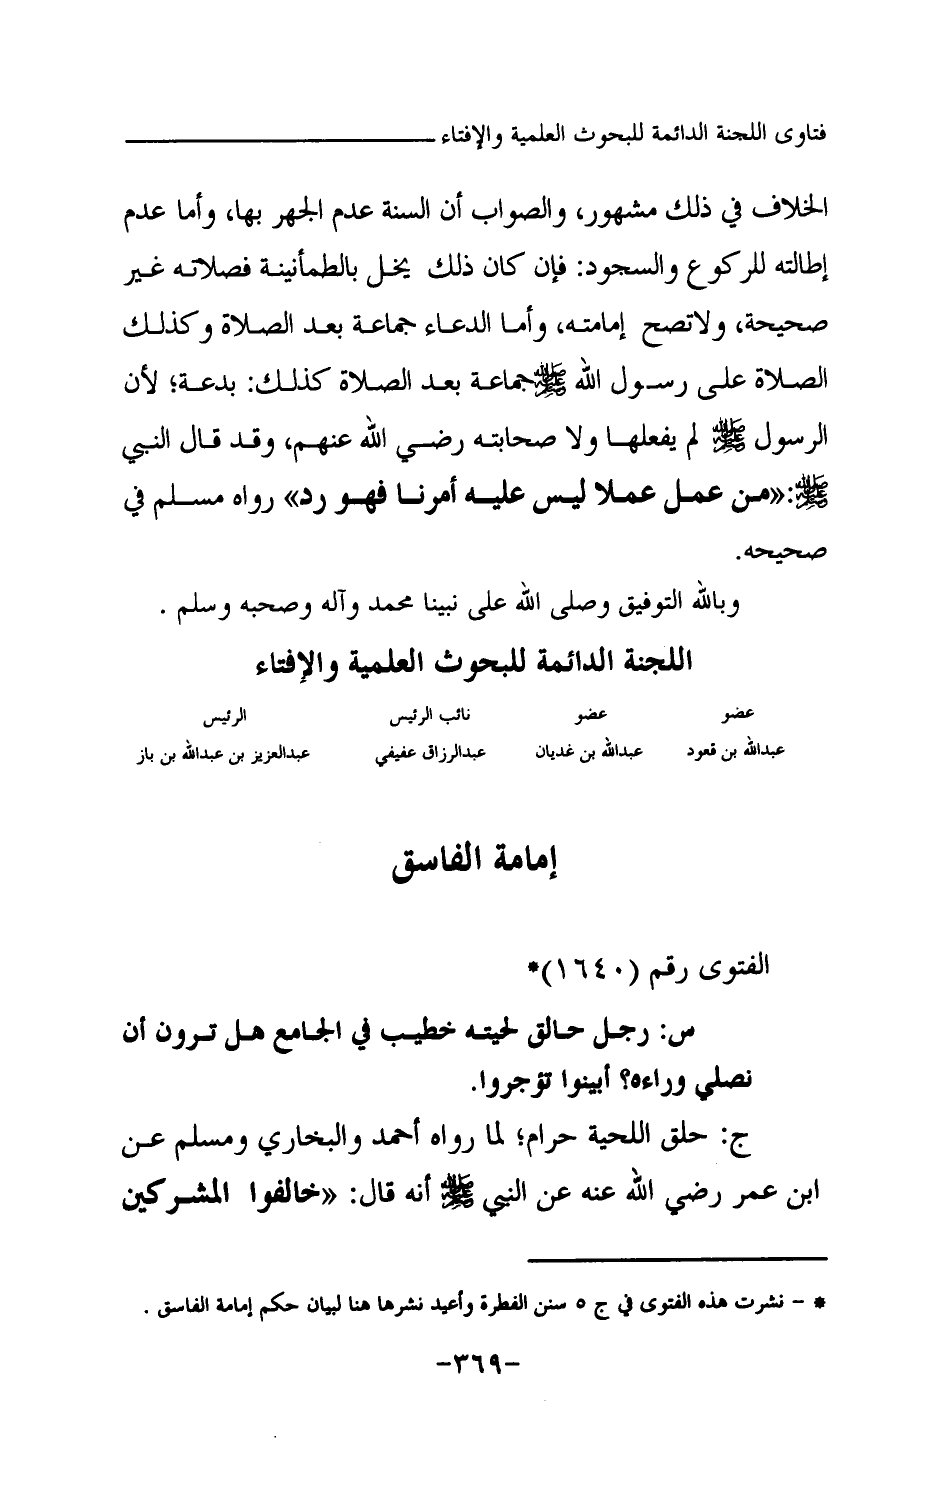 فتاوى اللجنة الدائمة للبحوث العلمية والإفتاء
الخلاف في ذلك مشهور، والصواب أن السنة عدم الجهر بها، وأما عدم
إطالته للركوع والسجود: فإن كان ذلك يخل بالطمأنينة فصلاته غير
صحيحة، ولاتصح إمامته، وأما الدعاء جماعة بعد الصلاة وكذلك
الصلاة على رسول الله ﷺ جماعة بعد الصلاة كذلك: بدعة؛ لأن
الرسول ﷺ لم يفعلها ولا صحابته رضي الله عنهم، وقد قال النبي
ﷺ: «من عمل عملا ليس عليه أمرنا فهو رد» رواه مسلم في
صحيحه.
وبالله التوفيق وصلى الله على نبينا محمد وآله وصحبه وسلم .
اللجنة الدائمة للبحوث العلمية والإفتاء
عضو عضو نائب الرئيس الرئيس
عبدالله بن قعود عبدالله بن غديان عبدالرزاق عفيفي عبدالعزيز بن عبدالله بن باز
إمامة الفاسق
الفتوى رقم (١٦٤٠)*
س: رجل حالق لحيته خطيب في الجامع هل ترون أن
نصلي وراءه؟ أبينوا تؤجروا.
ج: حلق اللحية حرام؛ لما رواه أحمد والبخاري ومسلم عن
ابن عمر رضي الله عنه عن النبي ﷺ أنه قال: «خالفوا المشركين
* – نشرت هذه الفتوى في ج ٥ سنن الفطرة وأعيد نشرها هنا لبيان حكم إمامة الفاسق .
–٣٦٩–